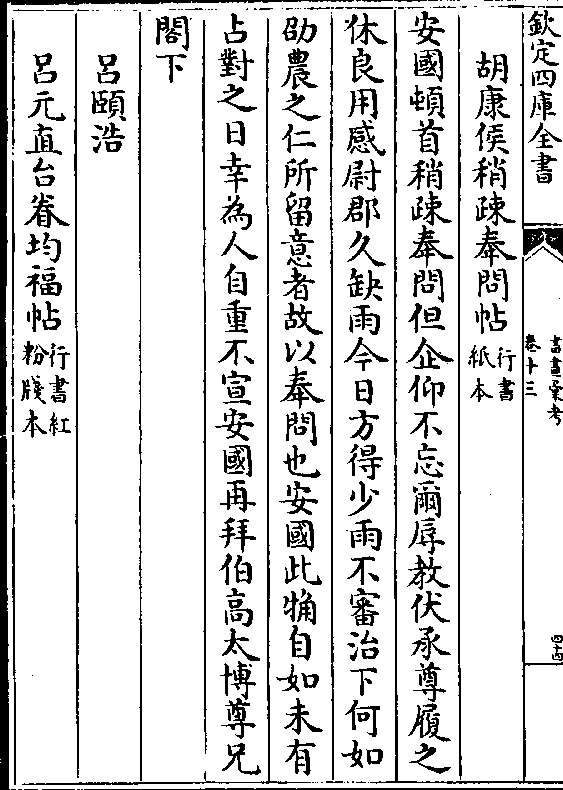 欽定四庫全書
書畫彙考
卷十三
四十四
胡康侯稍疎奉問帖行書紙本
安國頓首稍疎奉問但企仰不忘爾辱教伏承尊履之
休良用感尉郡久缺雨今日方得少雨不審治下何如
劭農之仁所留意者故以奉問也安國此觕自如未有
占對之日幸為人自重不宣安國再拜伯高太博尊兄
閣下
呂頤浩
呂元直台眷均福帖行書紅粉牋本